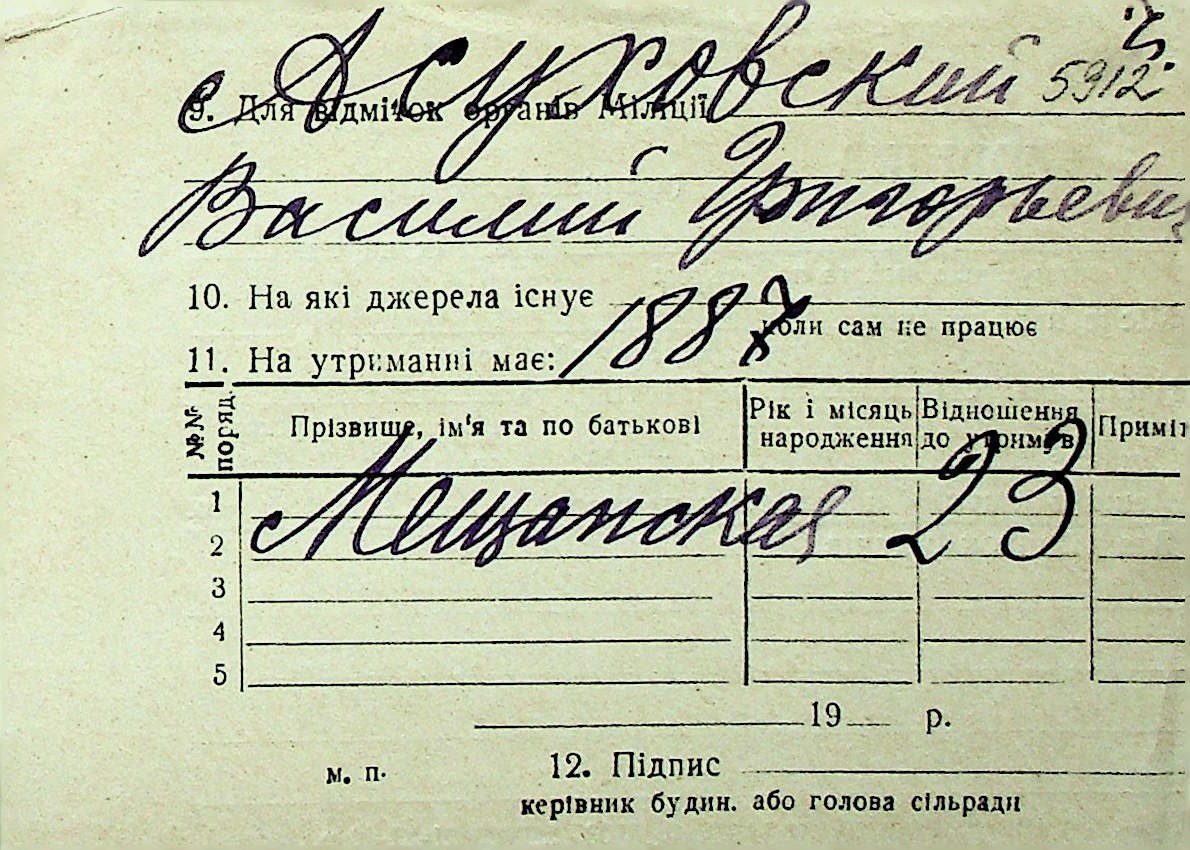 Асуховский 5912
9. Для відміток органів Міліції
Василий Григорьевич
10. На які джерела існує 1887
коли сам не працює
11. На утриманні має:
№№ поряд. Прізвище, ім'я та по батькові Рік і місяць народження Відношення до утримув. Приміт
1 Мещанская 23
2
3
4
5
19 р.
м. п. 12. Підпис
керівник будин. або голова сільради